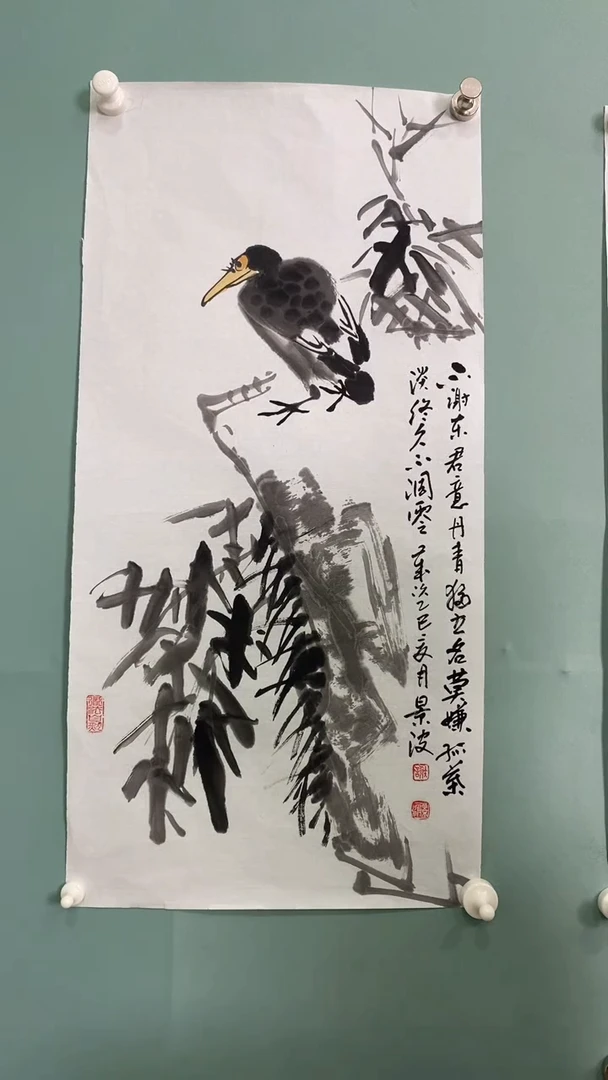 不谢东君意丹青独立名莫嫌孤叶
淡终久不凋零 岁次乙巳亥月景波